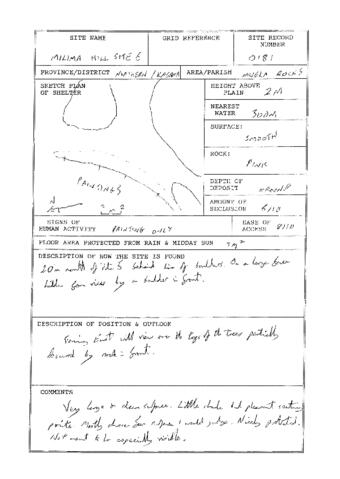 SITE NAME
GRID REFERENCE
SITE RECORD
NUMBER
MILIMA HILL SITE 6
0181
PROVINCE/DISTRICT NORTHERN / KASAMA
AREA/PARISH MWELA ROCKS
SKETCH PLAN
OF SHELTER
HEIGHT ABOVE
PLAIN 2M
NEAREST
WATER 300M
SURFACE:
SMOOTH
ROCK:
PINK
PAINTINGS
N
DEPTH OF
DEPOSIT
AMOUNT OF
SECLUSION
SIGNS OF
HUMAN ACTIVITY PAINTING ONLY
EASE OF
ACCESS 8/10
FLOOR AREA PROTECTED FROM RAIN & MIDDAY SUN
DESCRIPTION OF HOW THE SITE IS FOUND
20m north of site 5 behind line of boulders. On a large
hidden from view by a boulder in front.
DESCRIPTION OF POSITION & OUTLOOK
Facing East with view over the tops of the trees partially
obscured by rock in front.
COMMENTS
Very large & clean surface. Little shade but pleasant
points. Mostly above I would judge. Nicely protected.
Not meant to be especially visible.